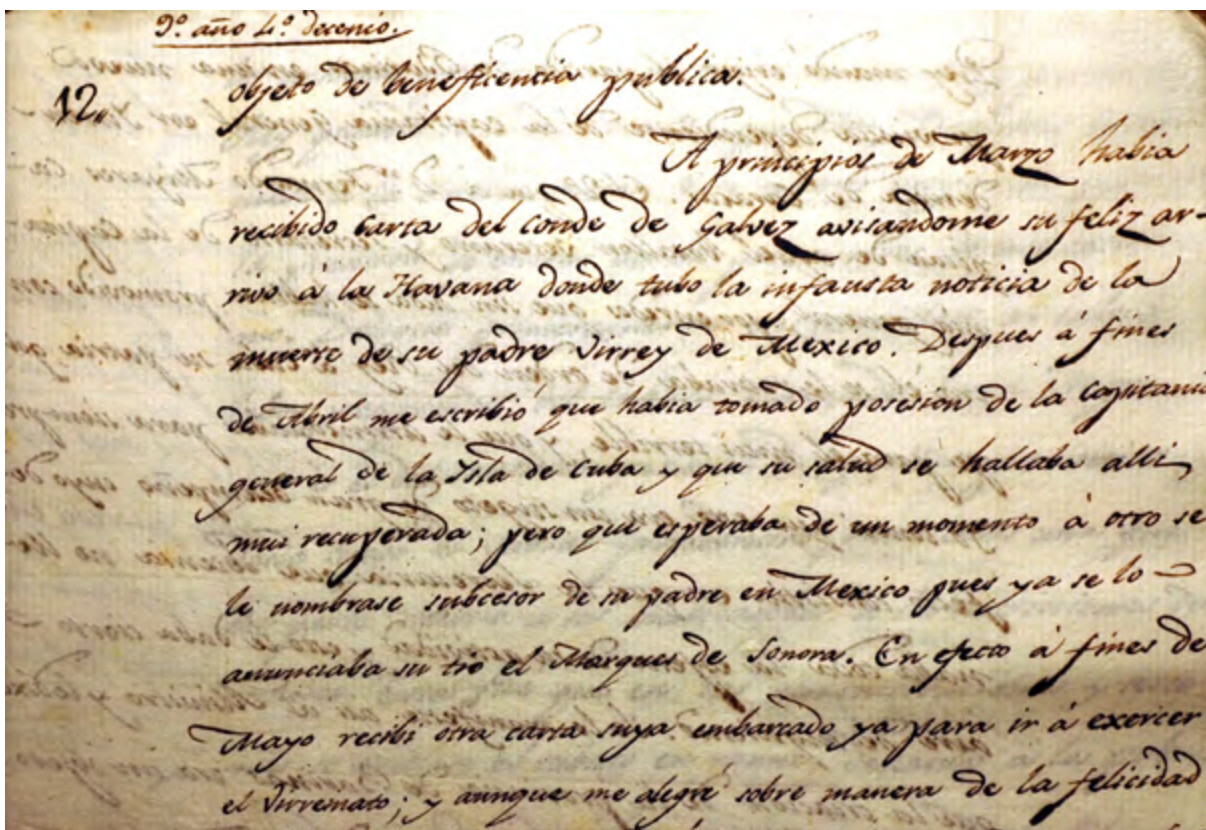 9.º año 4.º decenio.
12,,
objeto de beneficencia publica.
A principios de Marzo habia
recibido carta del conde de Galvez avisandome su feliz ar-
rivo á la Havana donde tubo la infausta noticia de la
muerte de su padre Virrey de Mexico. Despues á fines
de Abril me escribió que habia tomado posesion de la Capitania
general de la Isla de Cuba y que su salud se hallaba alli
mui recuperada; pero que esperaba de un momento á otro se
le nombrase subcesor de su padre en Mexico pues ya se lo
anunciaba su tio el Marques de Sonora. En efecto á fines de
Mayo recibi otra carta suya embarcado ya para ir á exercer
el Virreinato; y aunque me alegré sobre manera de la felicidad